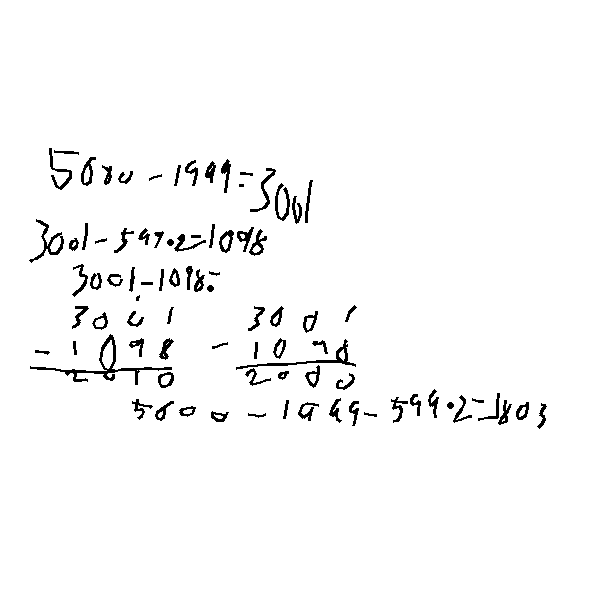 5000 - 1999 = 3001
3001 - 599.2 = 1098
3001 - 1098 =
3001 3001
- 1098 - 1098
2010 2000
5000 - 1999 - 599.2 = 1803